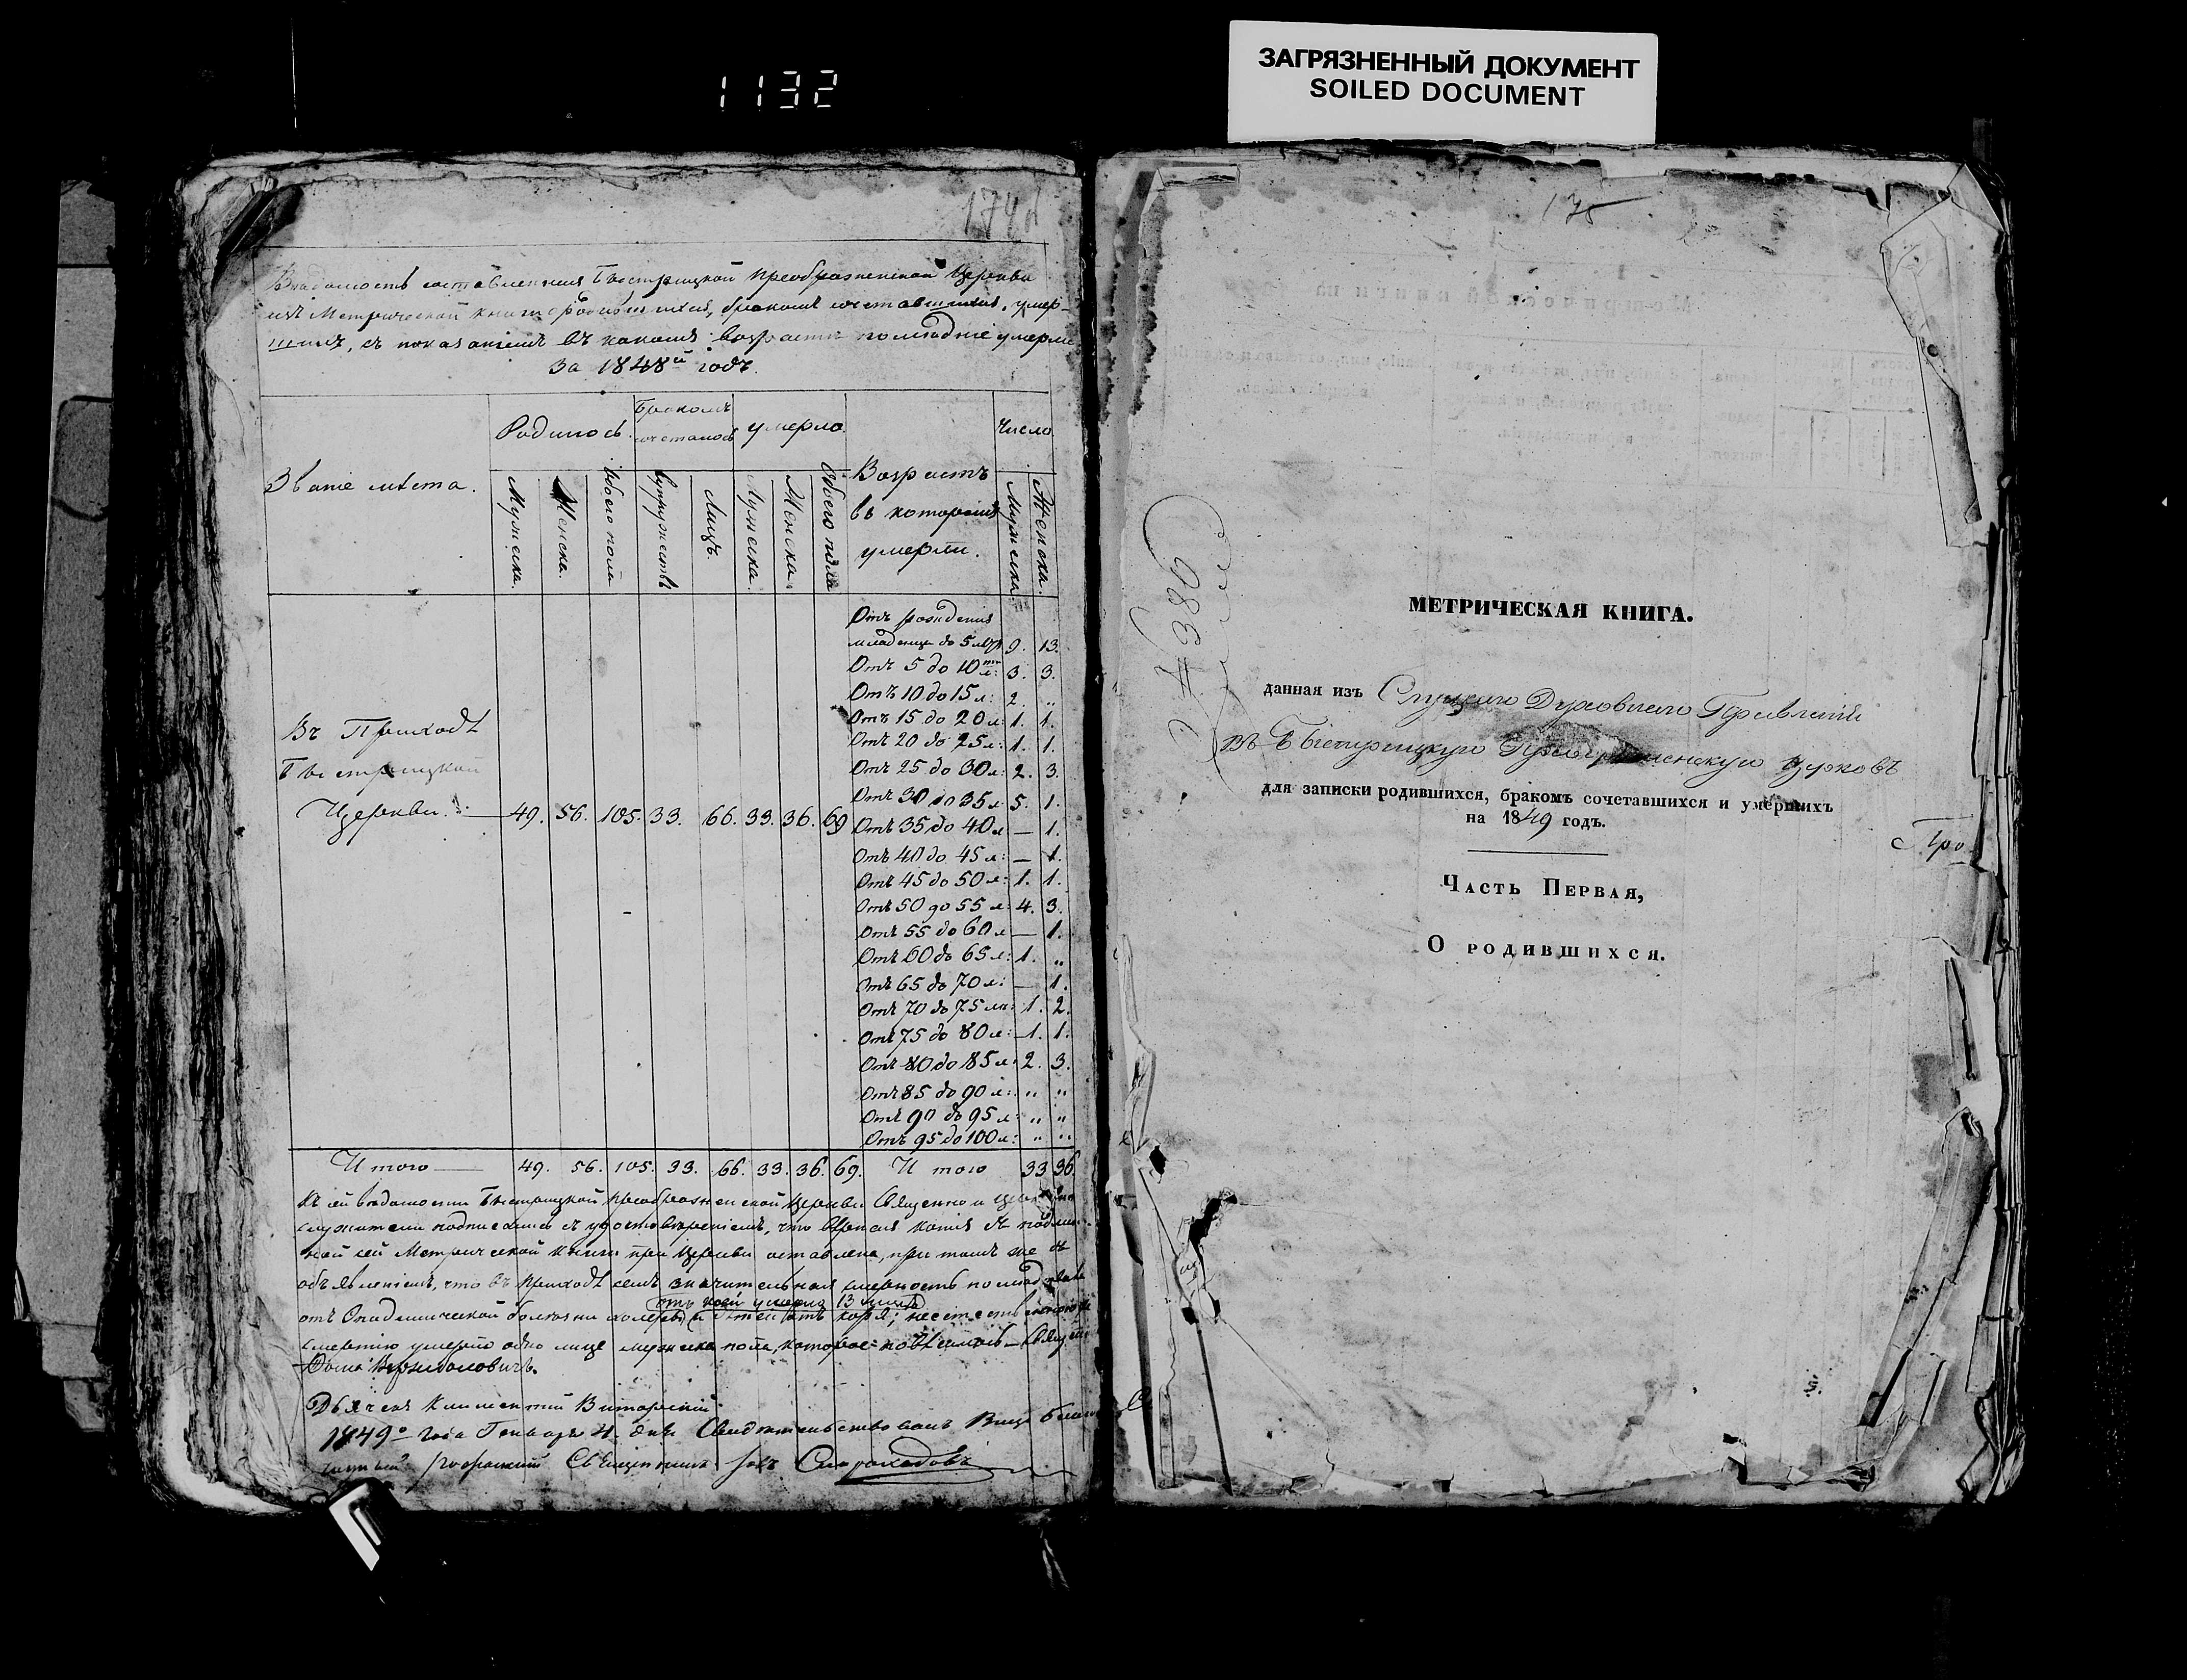 1132
ЗАГРЯЗНЕННЫЙ ДОКУМЕНТ
SOILED DOCUMENT
174
Вѣдомость составленная Быстрицкой Преображенской Церкви
изъ Метрической книги о родившихся, бракомъ сочетавшихся, умер-
шихъ, съ показаніемъ въ какомъ возрастѣ помѣдніе умерли
За 1848й годъ.
Званіе мѣста.
Родилось.
Бракомъ сочеталось
умерло.
Возрастъ въ которомъ умерли.
Число
Мужеска. Женска. Обоего пола Супружествъ Лицъ. Мужеска. Женска. Обоего пола Мужеска. Женска.
Отъ рожденія
младенца до 5 лѣтъ 9. 13.
Отъ 5 до 10ти л: 3. 3.
Отъ 10 до 15 л: 2. „
Отъ 15 до 20 л: 1. 1.
Отъ 20 до 25 л: 1. 1.
Отъ 25 до 30 л: 2. 3.
Отъ 30 до 35 л 5. 1.
Отъ 35 до 40 л — 1.
Отъ 40 до 45 л: — 1.
Отъ 45 до 50 л: 1. 1.
Отъ 50 до 55 л: 4. 3.
Отъ 55 до 60 л — 1.
Отъ 60 до 65 л: 1. „
Отъ 65 до 70 л: — 1.
Отъ 70 до 75 л: 1. 2.
Отъ 75 до 80 л: 1. 1.
Отъ 80 до 85 л: 2. 3.
Отъ 85 до 90 л: „ „
Отъ 90 до 95 л: „ „
Отъ 95 до 100 л: „ „
Въ Приходѣ
Быстрицкой
Церкви: — 49. 56. 105. 33. 66. 33. 36. 69
Итого — 49. 56. 105. 33. 66. 33. 36. 69. Итого 33 36.
Къ сей вѣдомости Быстрицкой Преображенской Церкви Священно и
служители подписались съ удостовѣреніемъ, что вѣрная копія съ подлин-
ной сей Метрической книги при Церкви оставлена, при томъ же съ
объявленіемъ, что въ приходѣ семъ значительная смертность
отъ коей умерло 13
отъ Эпидемической болѣзни холеры и дѣтей отъ кори;
смертію умерло одно лице мужеска пола, которое
Дьячекъ Климентій
1849о года Генваря 4. дня Свидѣтельствовалъ Вице
Священникъ
175
МЕТРИЧЕСКАЯ КНИГА.
данная изъ Слуцкаго Духовнаго Правленія
въ Быстрицкую Преображенскую Церковь
для записки родившихся, бракомъ сочетавшихся и умершихъ
на 1849 годъ.
Часть Первая,
О родившихся.
Про